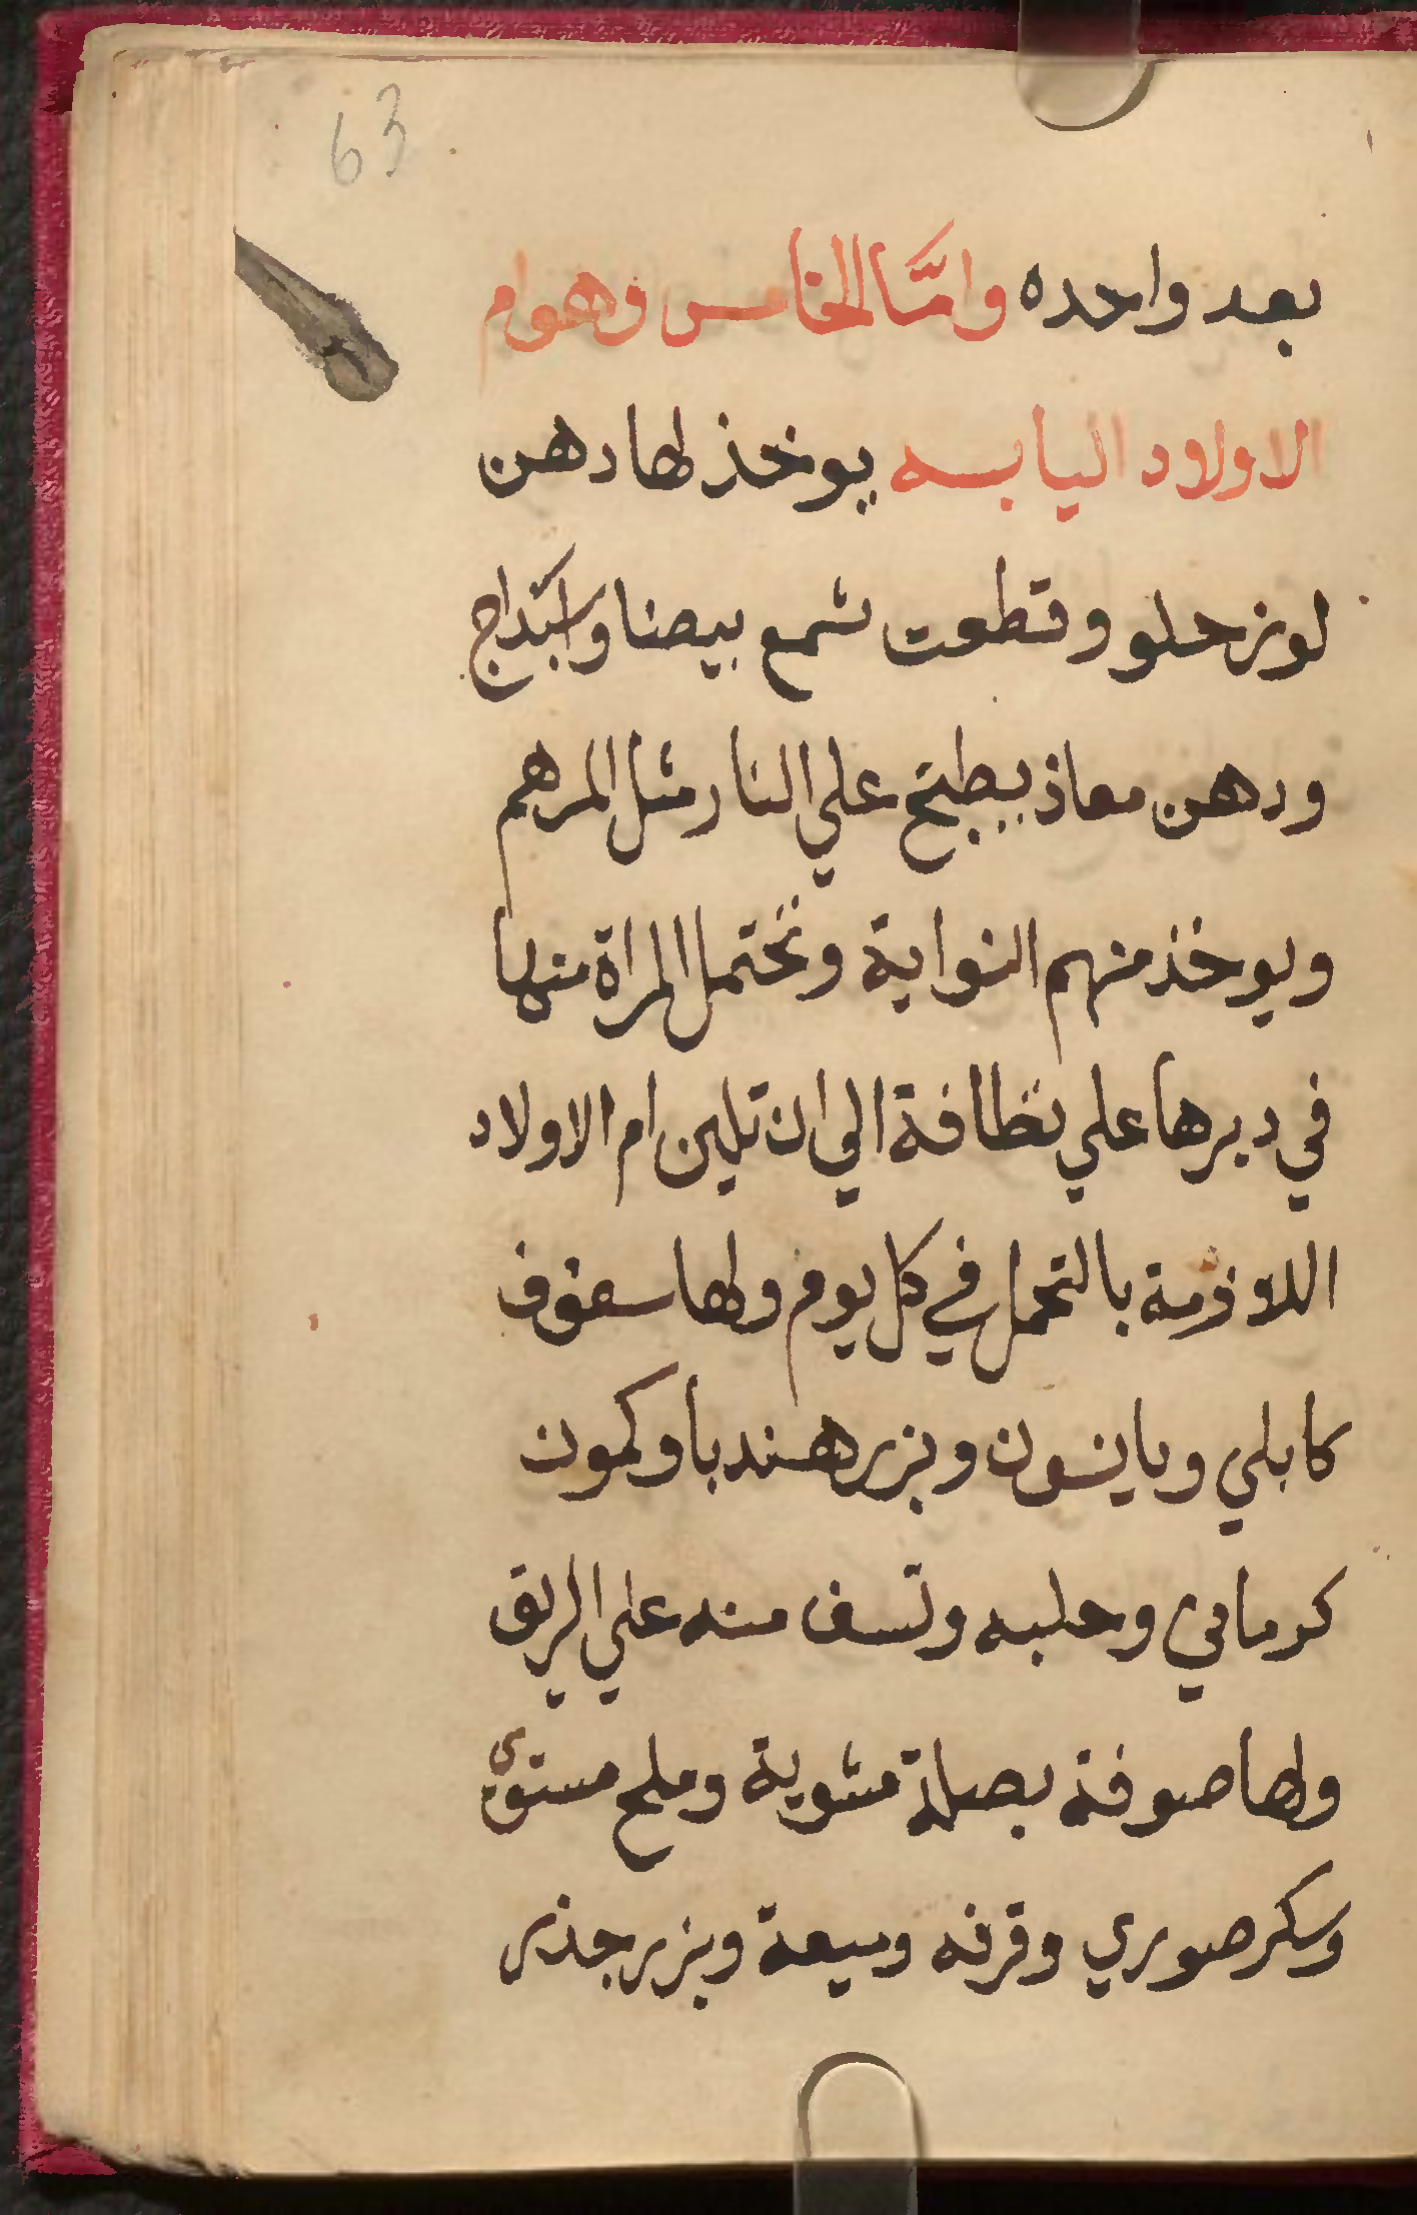 63
بعد واحده وامّا الخامس وهوام
الاولاد اليابسه يوخذ لها دهن
لوز حلو وقطعت شمع بيضا واسبتداج
ودهن معاذ يطبخ علي النار مثل المرهم
ويوخذ منهم النواية وتحتمل المراة منها
في دبرها علي نظافة الي ان تلين ام الاولاد
اللاوزمة بالتحمل في كل يوم ولها سفوف
كابلي ويانسون وبزر هندبا وكمون
كرماني وحلبه وتسف منه علي الريق
ولها صوفة بصلة مشوية وملح مستوي
وسكر صوري وقرفه وميعة وبزر جذر